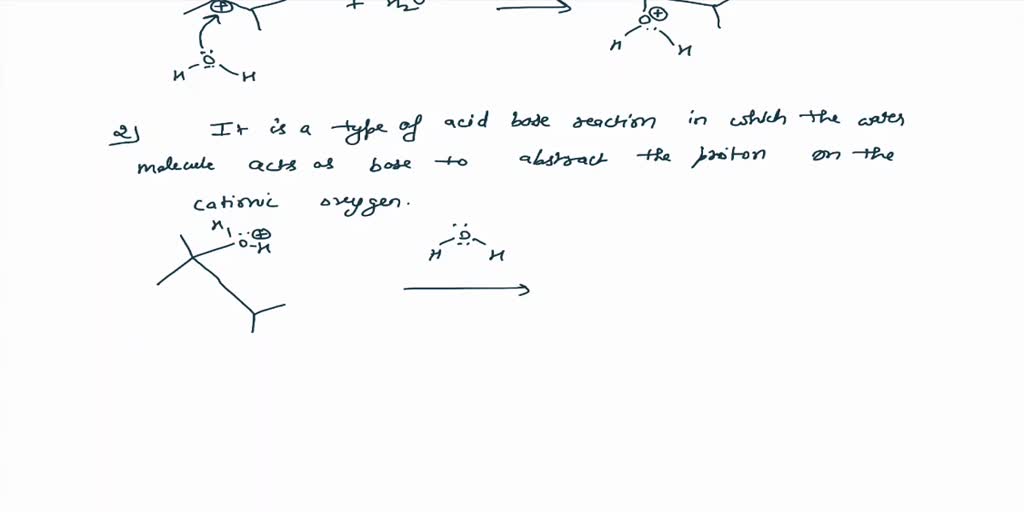 + H2O
O
H
H
H
O
H
2) It is a type of acid base reaction in which the water
molecule acts as base to abstract the proton on the
cationic oxygen.
H
O-H
O
H
H